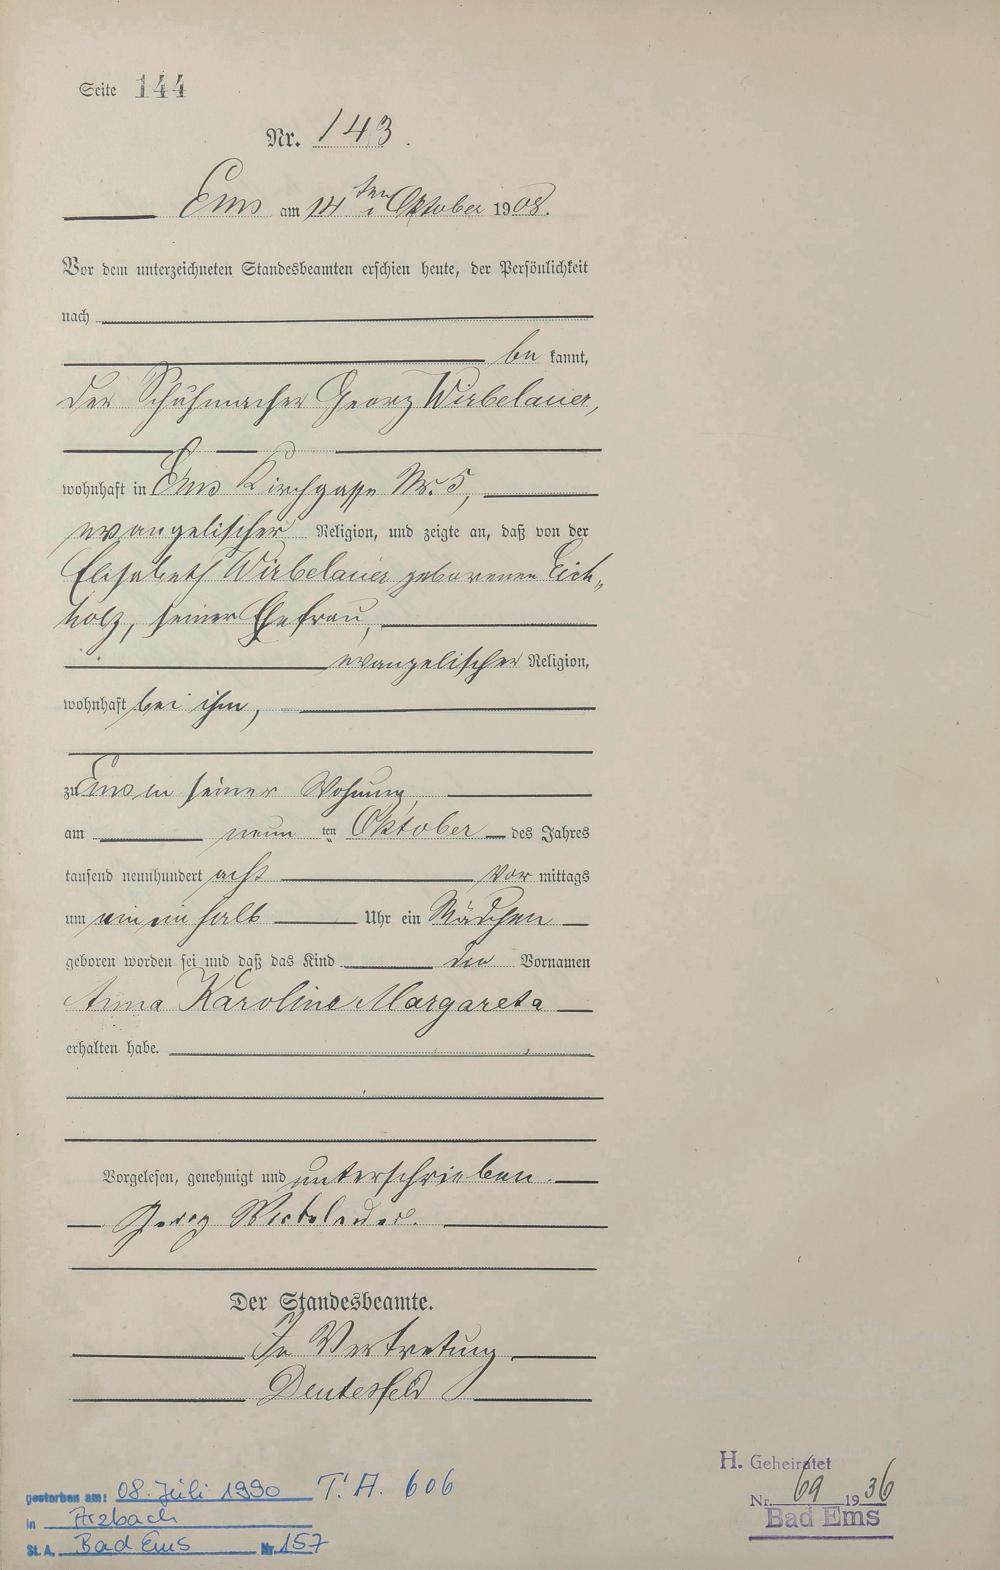 Seite 144
Nr. 143.
Ems am 14ten Oktober 1908.
Vor dem unterzeichneten Standesbeamten erschien heute, der Persönlichkeit
nach
be kannt,
der Schuhmacher Georg Wirbelauer,
wohnhaft in Ems Kirchgasse Nr. 5,
evangelischer Religion, und zeigte an, daß von der
Elisabeth Wirbelauer geborenen Eich„
holz, seiner Ehefrau,
evangelischer Religion,
wohnhaft bei ihm,
zu Ems in seiner Wohnung,
am neun ten Oktober des Jahres
tausend neunhundert acht Vor mittags
um ein ein halb Uhr ein Mädchen
geboren worden sei und daß das Kind die Vornamen
Anna Karoline Margareta
erhalten habe.
Vorgelesen, genehmigt und unterschrieben.
Georg Wirbelauer.
Der Standesbeamte.
In Vertretung
Deutesfeld
H. Geheiratet
Nr. 69 1936
Bad Ems
gestorben am: 08. Juli 1990 T. A. 606
in Arzbach
St. A. Bad Ems Nr. 157